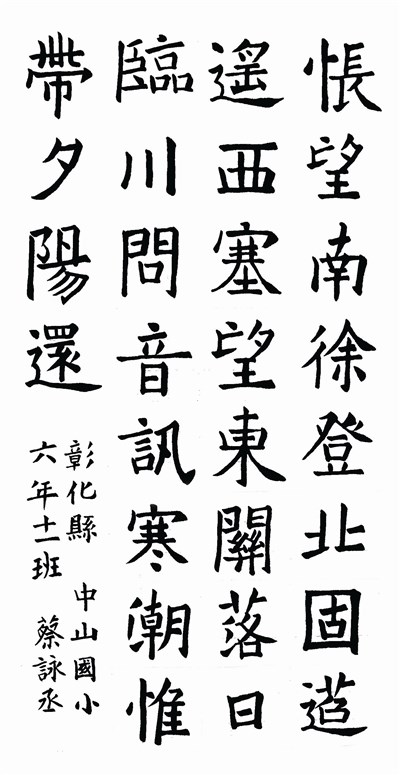 悵望南徐登北固迢
遙西塞望東關落日
臨川問音訊寒潮惟
帶夕陽還
彰化縣 中山國小
六年十一班 蔡詠丞